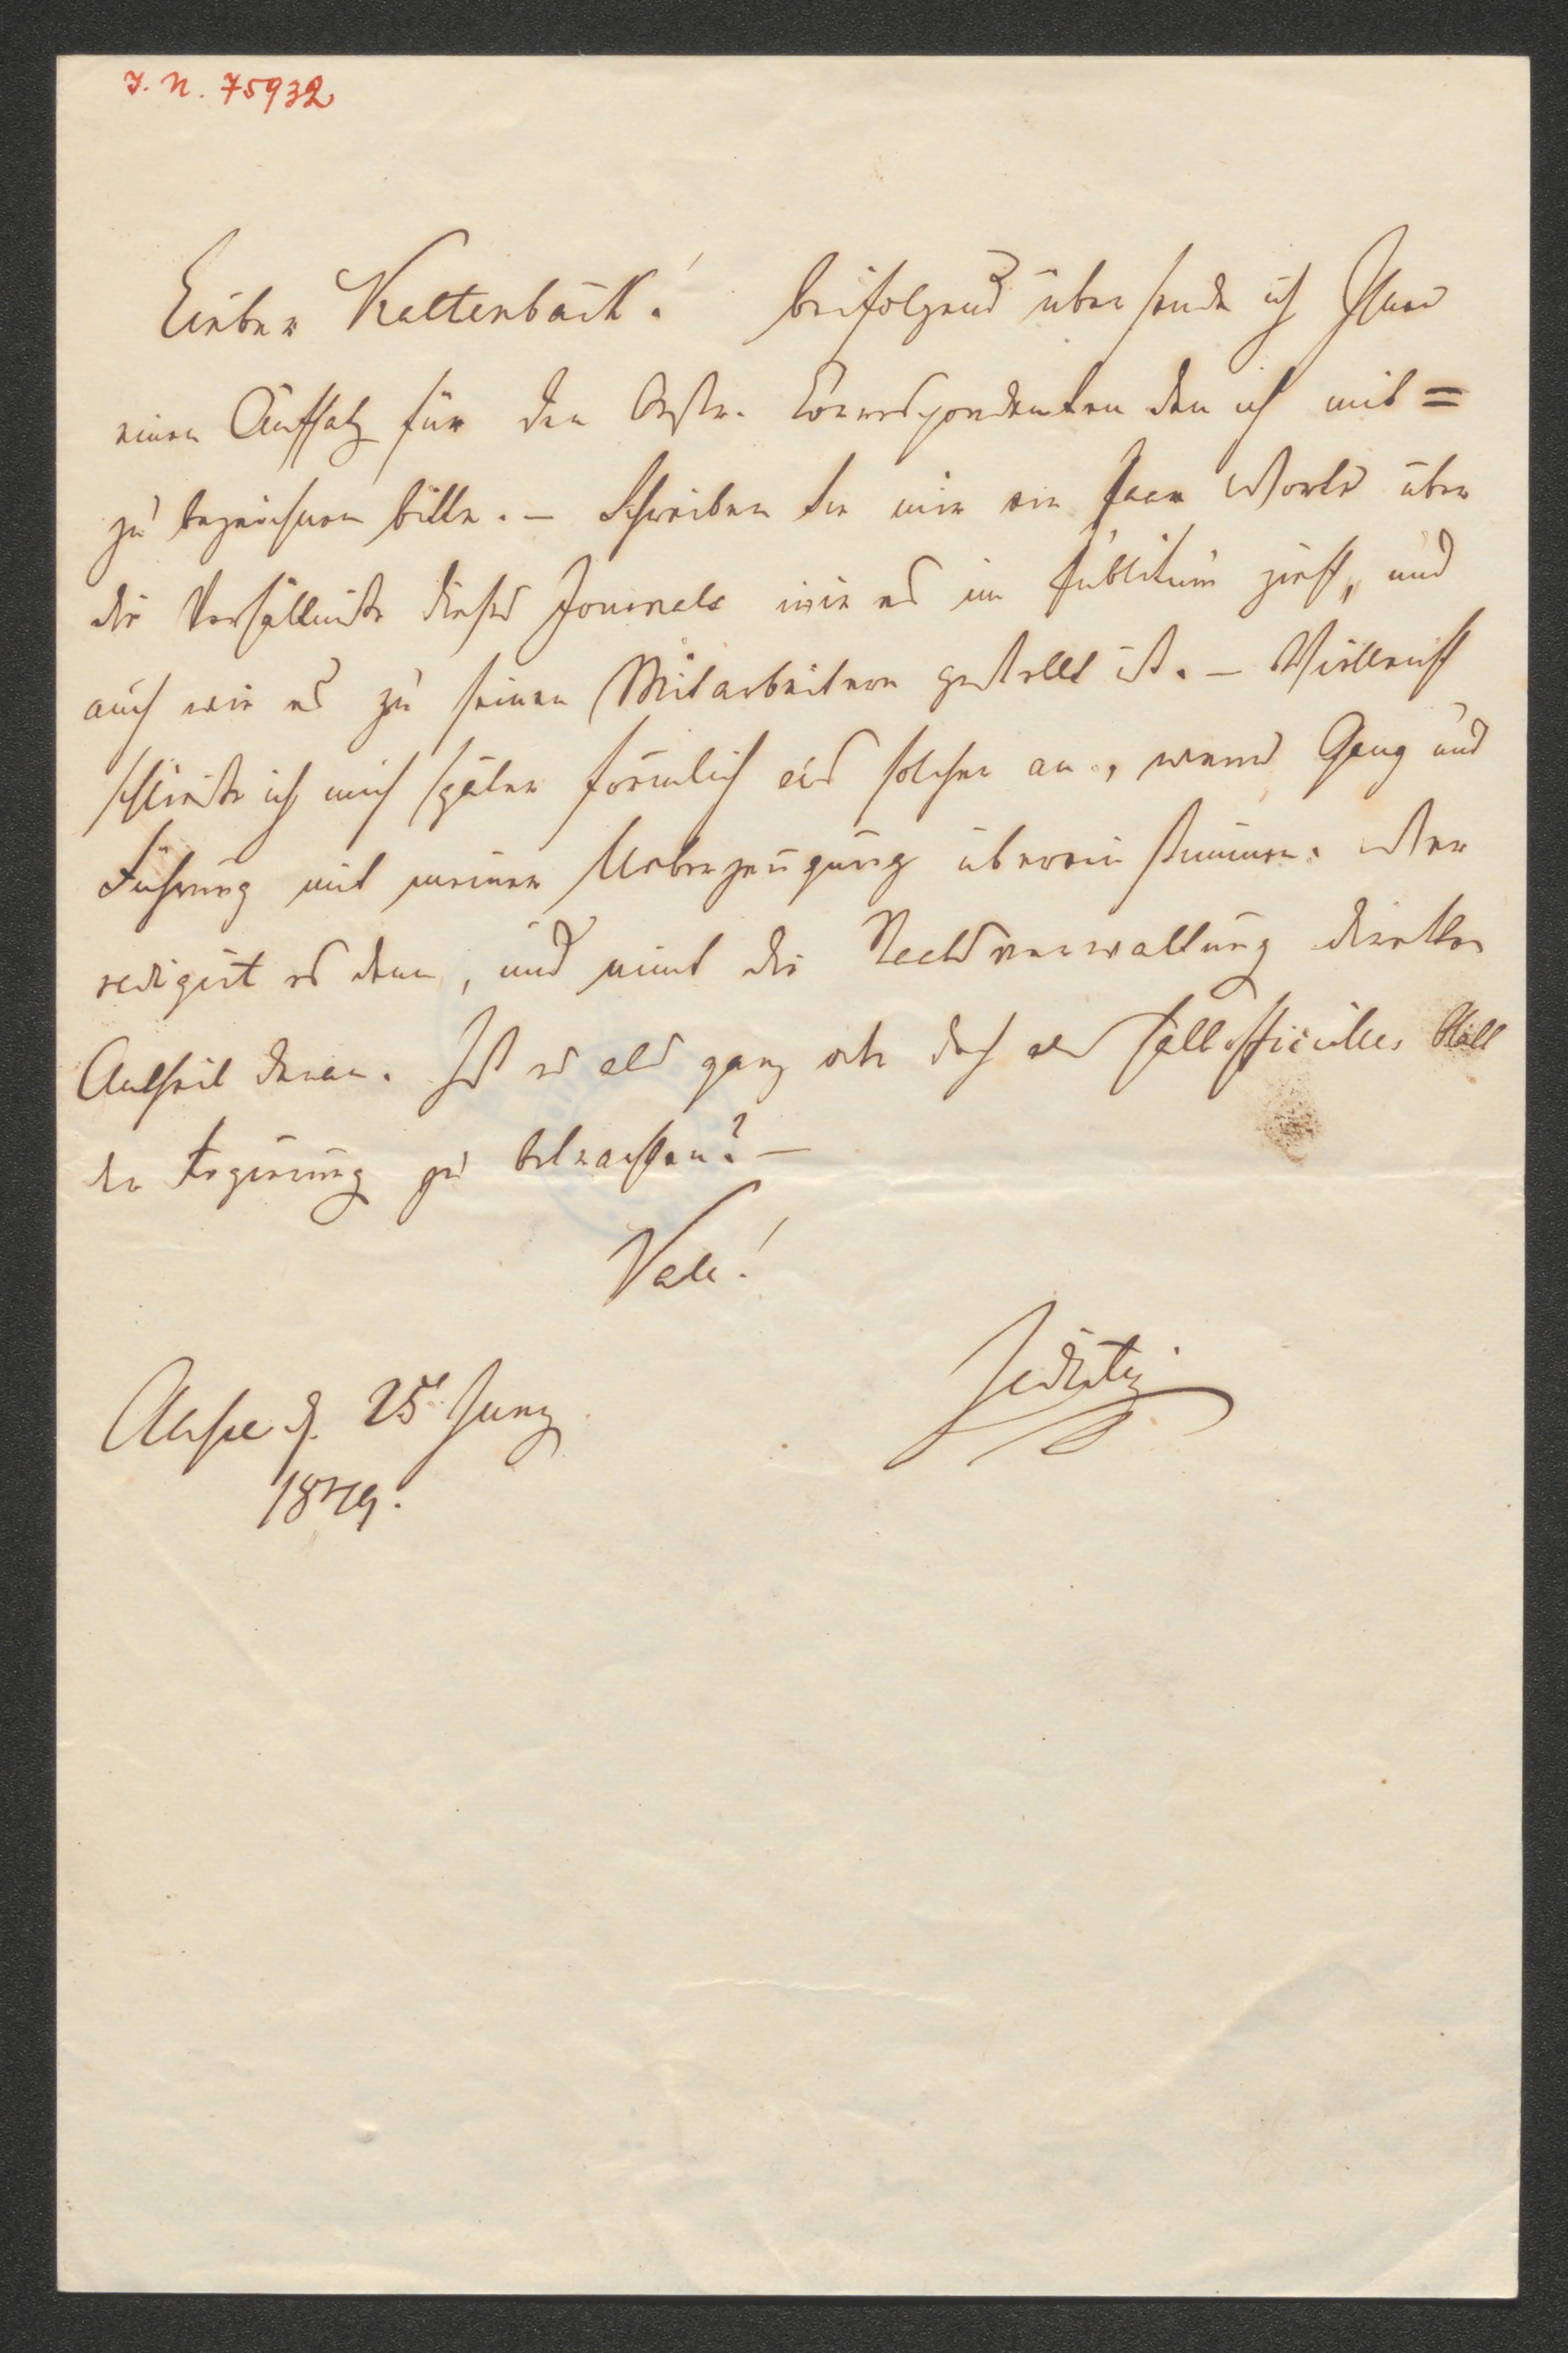 I. N. 75932
Lieber Kaltenbäck! beifolgend übersende ich Ihnen
einen Aufsatz für den Oestr. Correspondenten den ich mit =
zu bezeichnen bitte. – Schreiben Sie mir ein Paar Worte über
die Verhältniße dieses Journals wie es im Publikum zieht, und
auch wie es zu seinen Mitarbeitern gestellt ist. – Vielleicht
schließe ich mich später förmlich als solcher an, wenn Gang und
Führung mit meiner Ueberzeugung übereinstimmen. Wer
redigirt es denn, und nimt die direkten
Antheil daran. Ist es als ganz oder doch als halbofficielles Blatt
der Regierung zu betrachten? –
Vale!
Zedlitz
Aussee d. 25t Juny
1849.